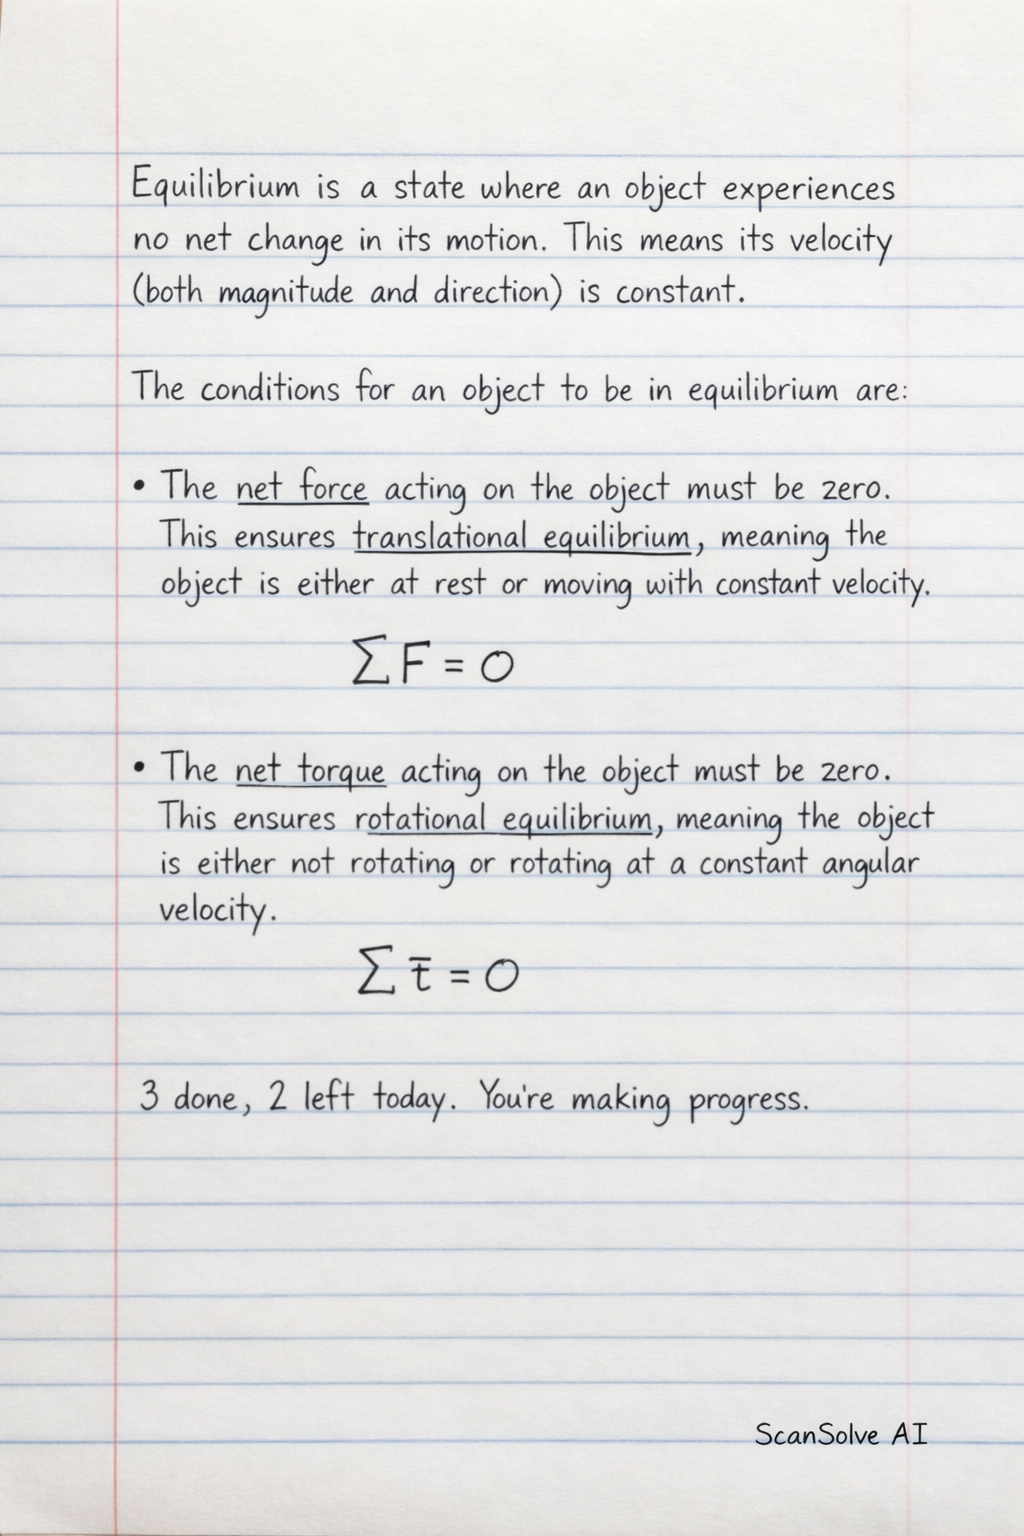 Equilibrium is a state where an object experiences
no net change in its motion. This means its velocity
(both magnitude and direction) is constant.
The conditions for an object to be in equilibrium are:
• The net force acting on the object must be zero.
This ensures translational equilibrium, meaning the
object is either at rest or moving with constant velocity.
∑F = 0
• The net torque acting on the object must be zero.
This ensures rotational equilibrium, meaning the object
is either not rotating or rotating at a constant angular
velocity.
∑ τ̄ = 0
3 done, 2 left today. You're making progress.
ScanSolve AI